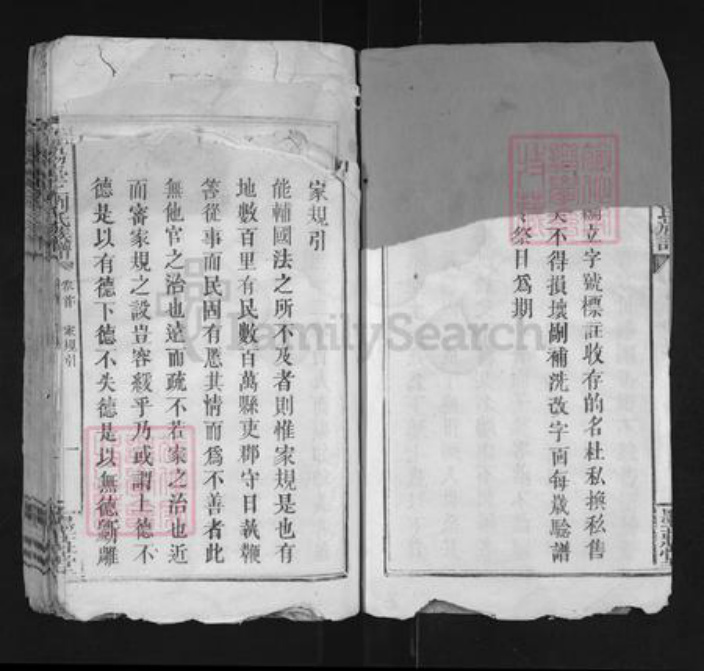 立字號標註收存的名杜私換私售
不得損壞剮補洗改字面每歲驗譜
祭日爲期
家規引
能輔國法之所不及者則惟家規是也有
地數百里有民數百萬縣吏郡守日執鞭
笞從事而民固有慝其情而爲不善者此
無他官之治也遠而疏不若家之治也近
而審家規之設豈容緩乎乃或謂上德不
德是以有德下德不失德是以無德斵雕
卷首 家規引
一
FamilySearch